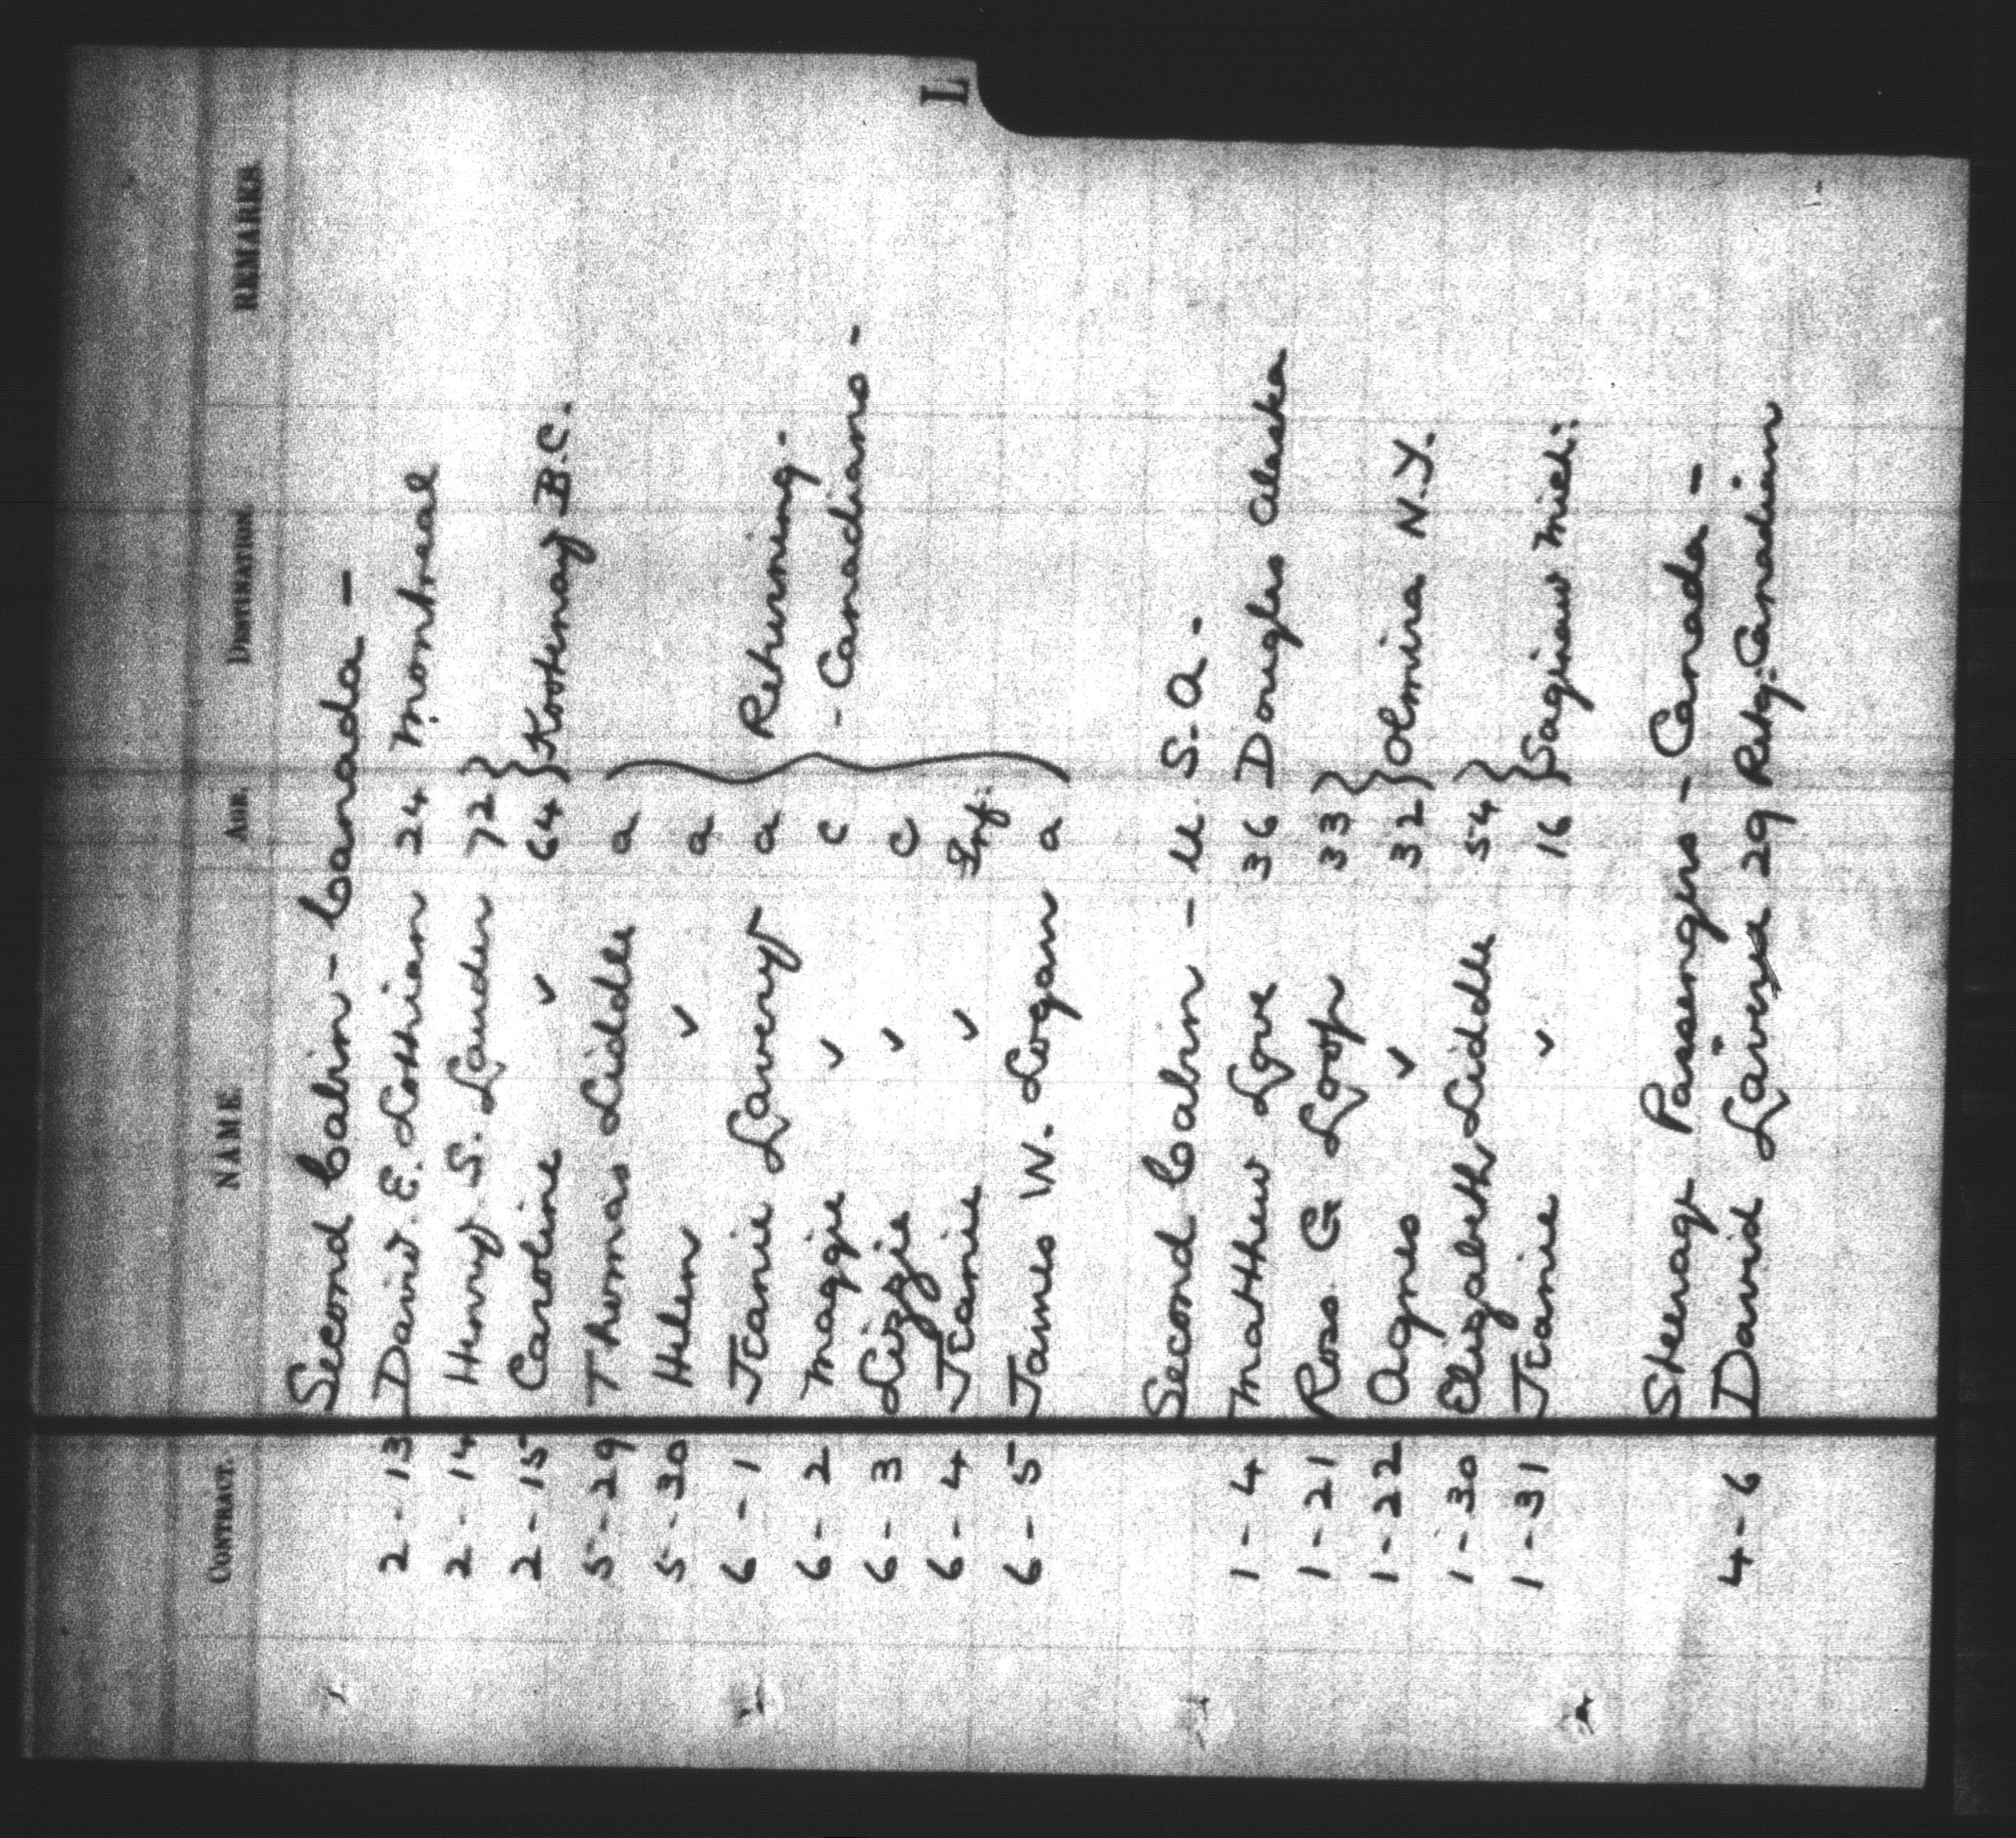 L
CONTRACT. NAME AGE. DESTINATION REMARKS
Second Cabin - Canada -
2 - 13 David E. Lothian 24 Montreal
2 - 14 Henry S. Lauder 72 }
2 - 15 Caroline ✓ 64 } Kootenay B.C.
5 - 29 Thomas Liddle a
5 - 30 Helen ✓ a
6 - 1 Jeanie Lavery a Returning -
6 - 2 Maggie ✓ c - Canadians -
6 - 3 Lizzie ✓ c
6 - 4 Jeanie ✓ Inf.
6 - 5 James W. Logan a
Second Cabin - U.S.A -
1 - 4 Matthew Love 36 Douglas Alaska
1 - 21 Ross G Loop 33 }
1 - 22 Agnes ✓ 32 } Olmira N.Y.
1 - 30 Elizabeth Liddle 54 }
1 - 31 Jeanie ✓ 16 } Saginaw Mich:
Steerage Passengers - Canada -
4 - 6 David 29 Retg. Canadian